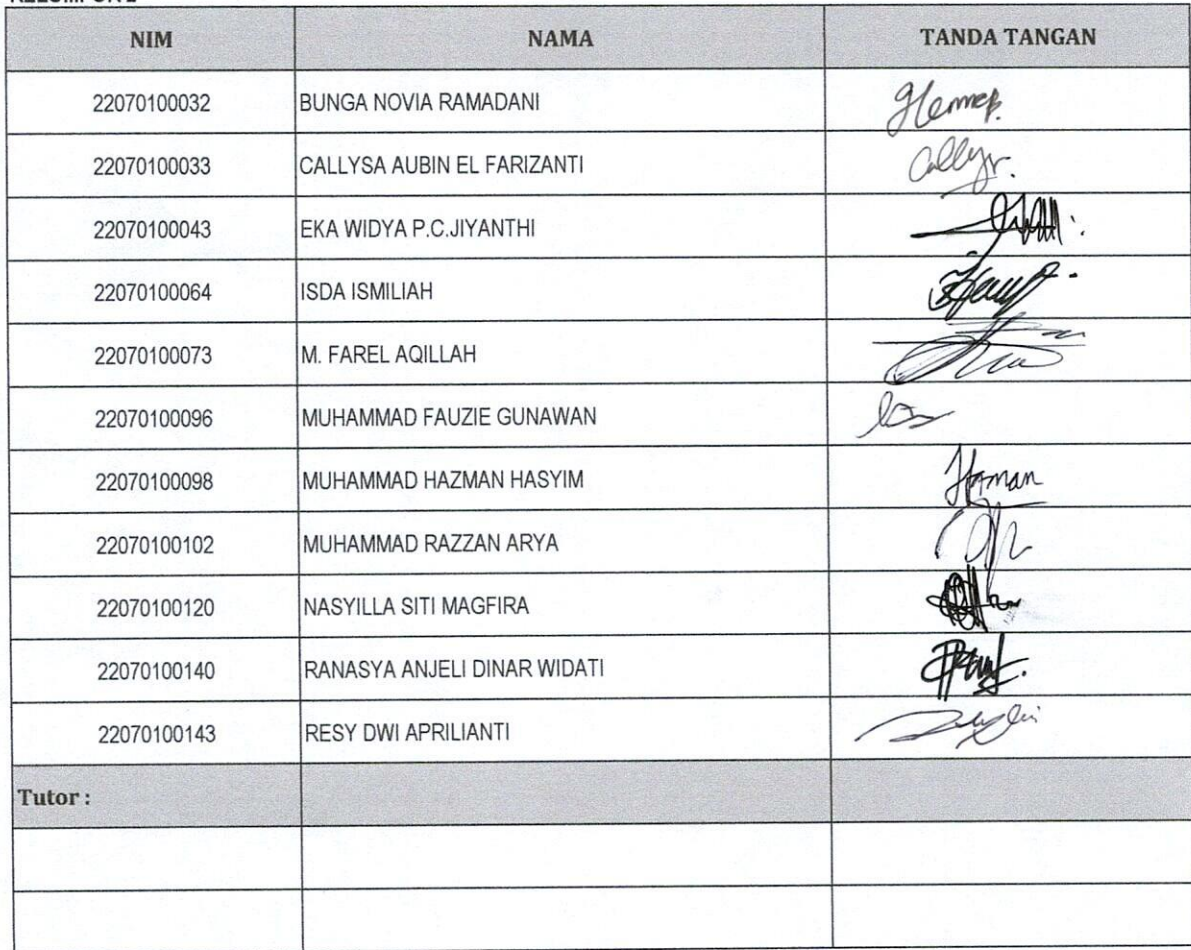 NIM NAMA TANDA TANGAN
22070100032 BUNGA NOVIA RAMADANI
22070100033 CALLYSA AUBIN EL FARIZANTI
22070100043 EKA WIDYA P.C.JIYANTHI
22070100064 ISDA ISMILIAH
22070100073 M. FAREL AQILLAH
22070100096 MUHAMMAD FAUZIE GUNAWAN
22070100098 MUHAMMAD HAZMAN HASYIM
22070100102 MUHAMMAD RAZZAN ARYA
22070100120 NASYILLA SITI MAGFIRA
22070100140 RANASYA ANJELI DINAR WIDATI
22070100143 RESY DWI APRILIANTI
Tutor :